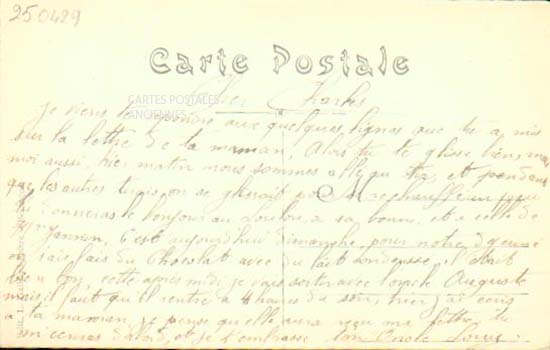 250429
Carte Postale
CARTES POSTALES
ANCIENNES
Cher Charles
Je viens te répondre aux quelques lignes que tu a mis
sur la lettre de la maman, Alors tu te glisse bien, mais
moi aussi, hier matin nous sommes allé au tir, et pendant
que les autres tirais, on se glissait pour se réchauffer un peu
tu donneras le bonjour au Loulou, a sa bonne et a celle de
Mr Jannon, C'est aujourd'hui dimanche, pour notre déjeuné
on fais du Chocolat avec du lait condensé, il était
bien bon, cette après midi je vais sortir avec l'oncle Auguste
mais il faut qu'il rentre a 4 heures du soir, hier j'ai écris
a la maman, je pense qu'elle aura reçu ma lettre, tu
m'écriras d'abord, et je t'embrasse ton Oncle Louis.